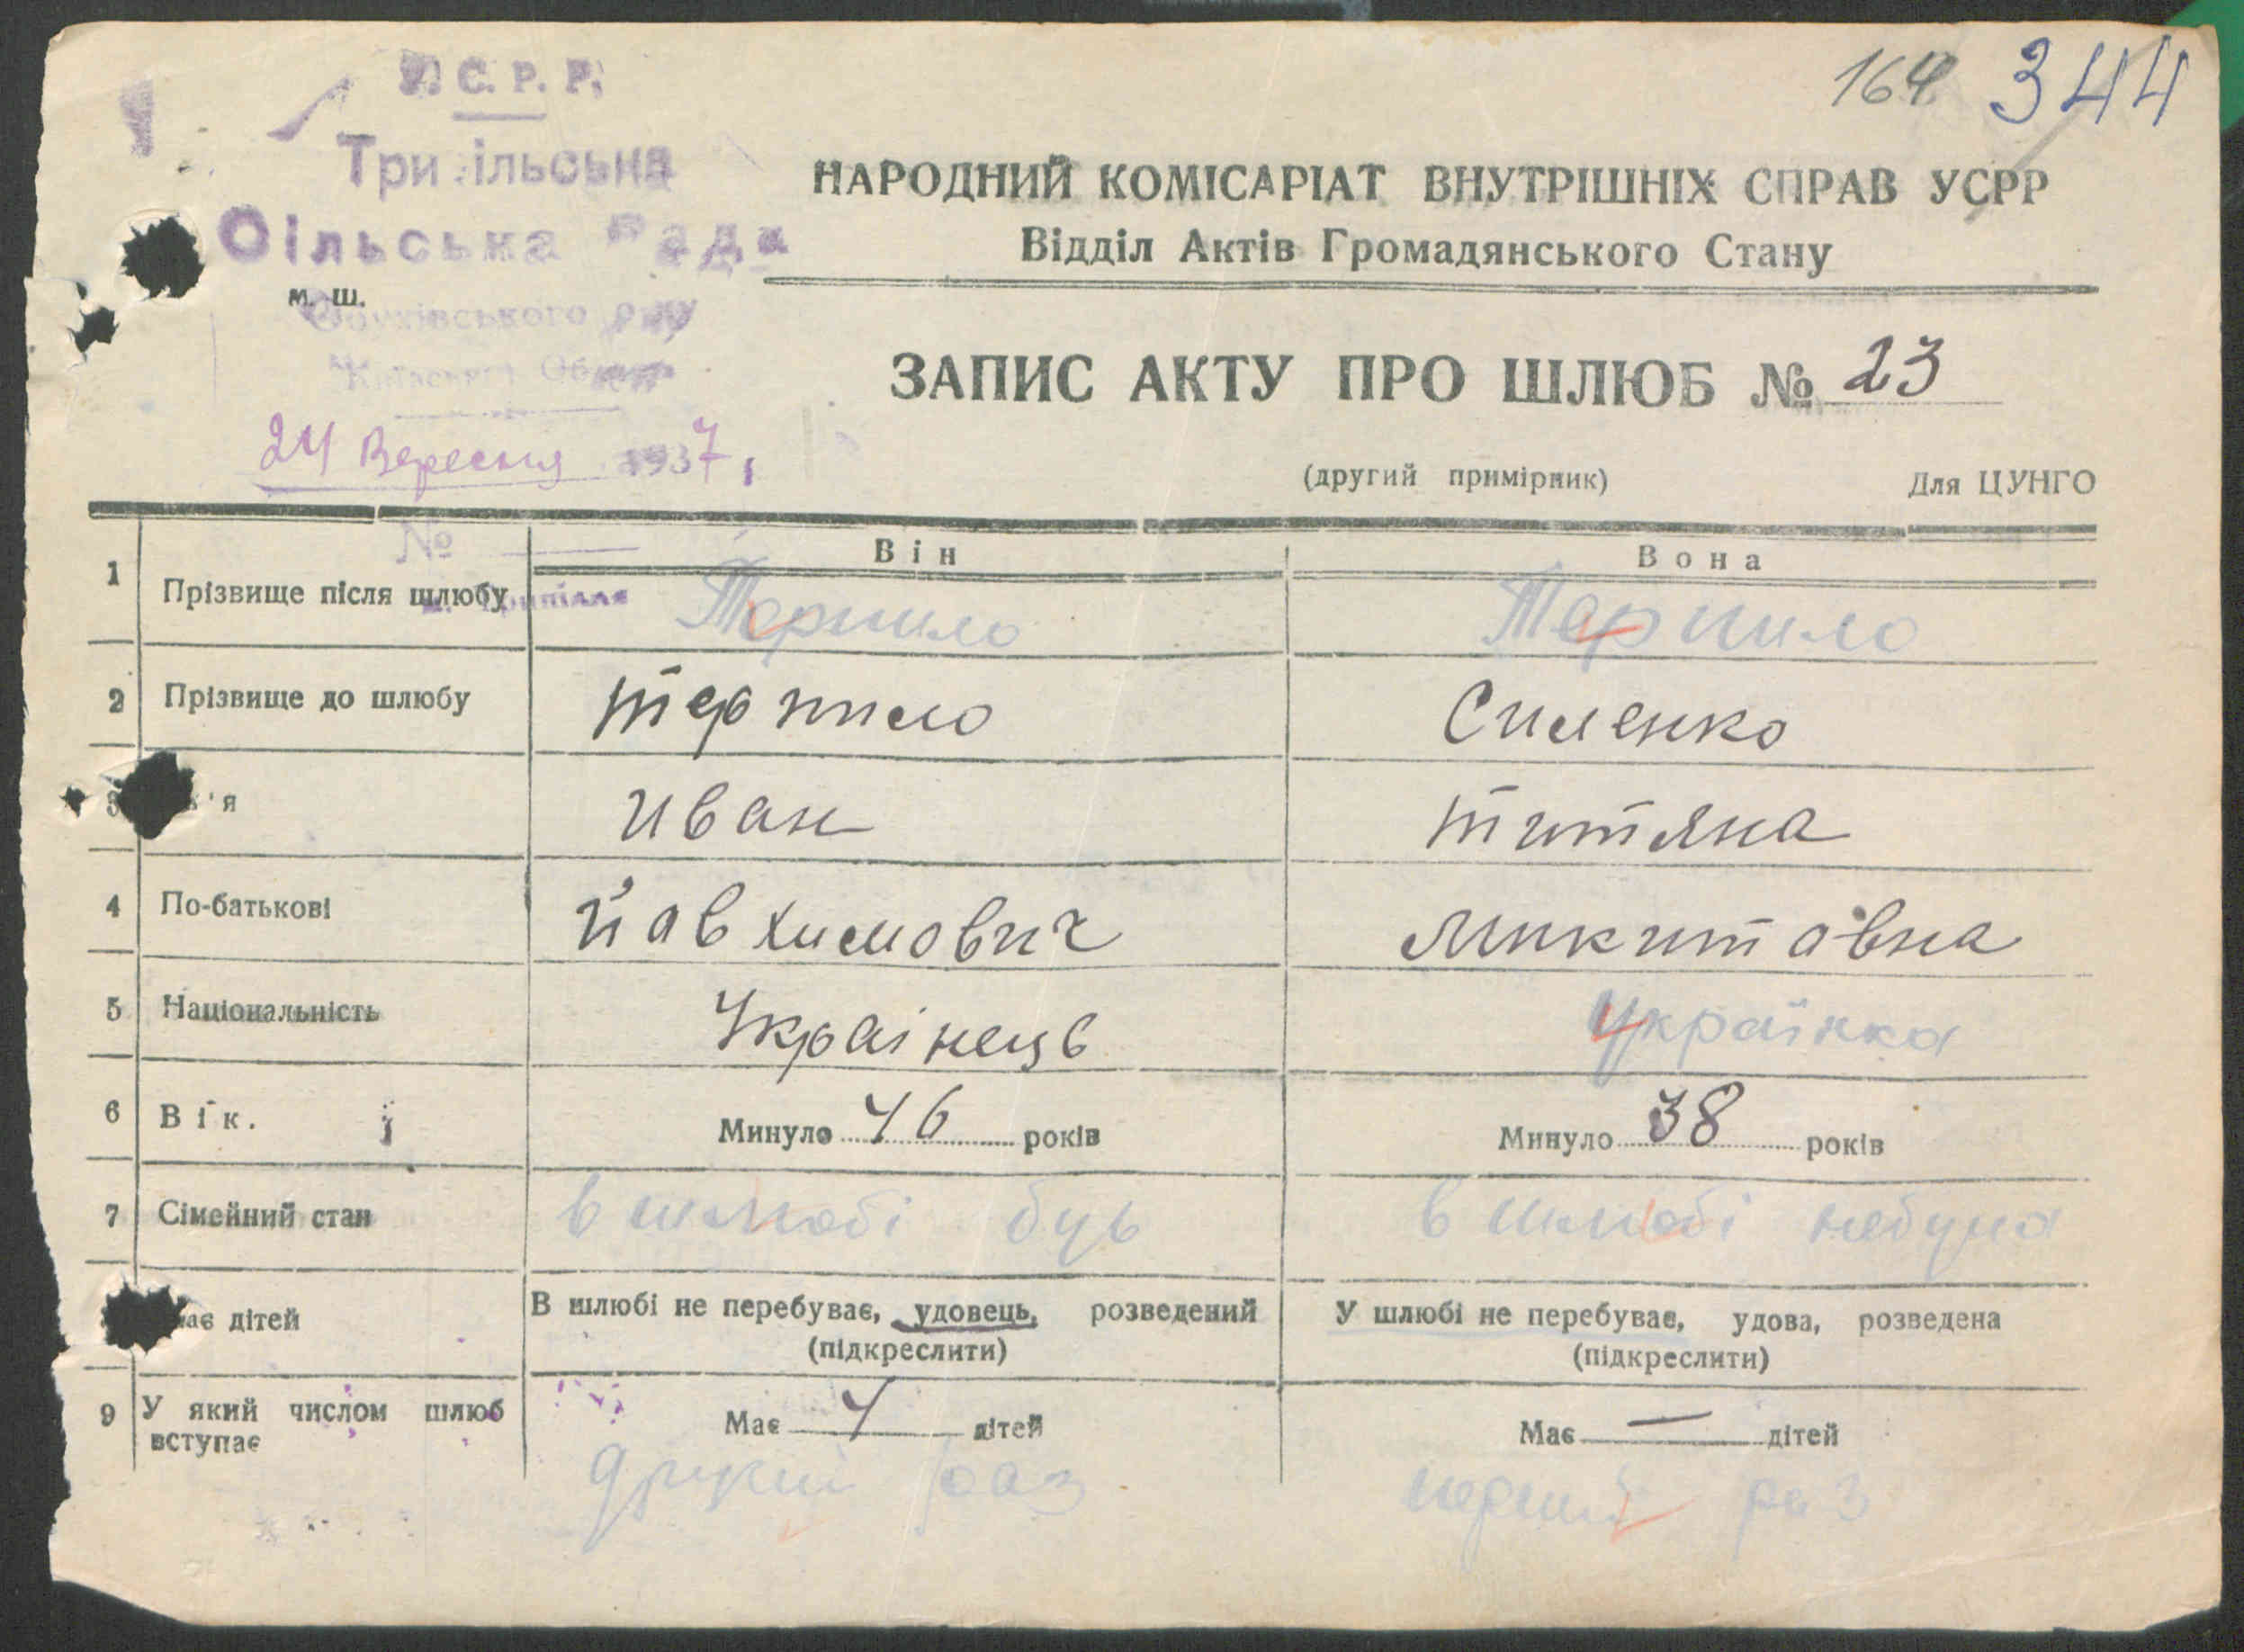 У. С. Р. Р.
164 344
Трипільська
Сільська Рада
НАРОДНИЙ КОМІСАРІАТ ВНУТРІШНІХ СПРАВ УСРР
Відділ Актів Громадянського Стану
м. ш.
Обухівського р-ну
Київської Області
ЗАПИС АКТУ ПРО ШЛЮБ № 23
24 Вересня 1937
(другий примірник) Для ЦУНГО
№
Він Вона
1 Прізвище після шлюбу Терпило Терпило
с. Трипілля
2 Прізвище до шлюбу терпило Силенко
3 м'я Иван титяна
4 По-батькові Йавхимович микитовна
5 Національність Украінець Українка
6 Вік. Минуло 46 років Минуло 38 років
7 Сімейний стан в шлюбі був в шлюбі небула
має дітей В шлюбі не перебуває, удовець, розведений У шлюбі не перебуває, удова, розведена
(підкреслити) (підкреслити)
9 У який числом шлюб вступає Має 4 дітей Має — дітей
другий раз перший раз